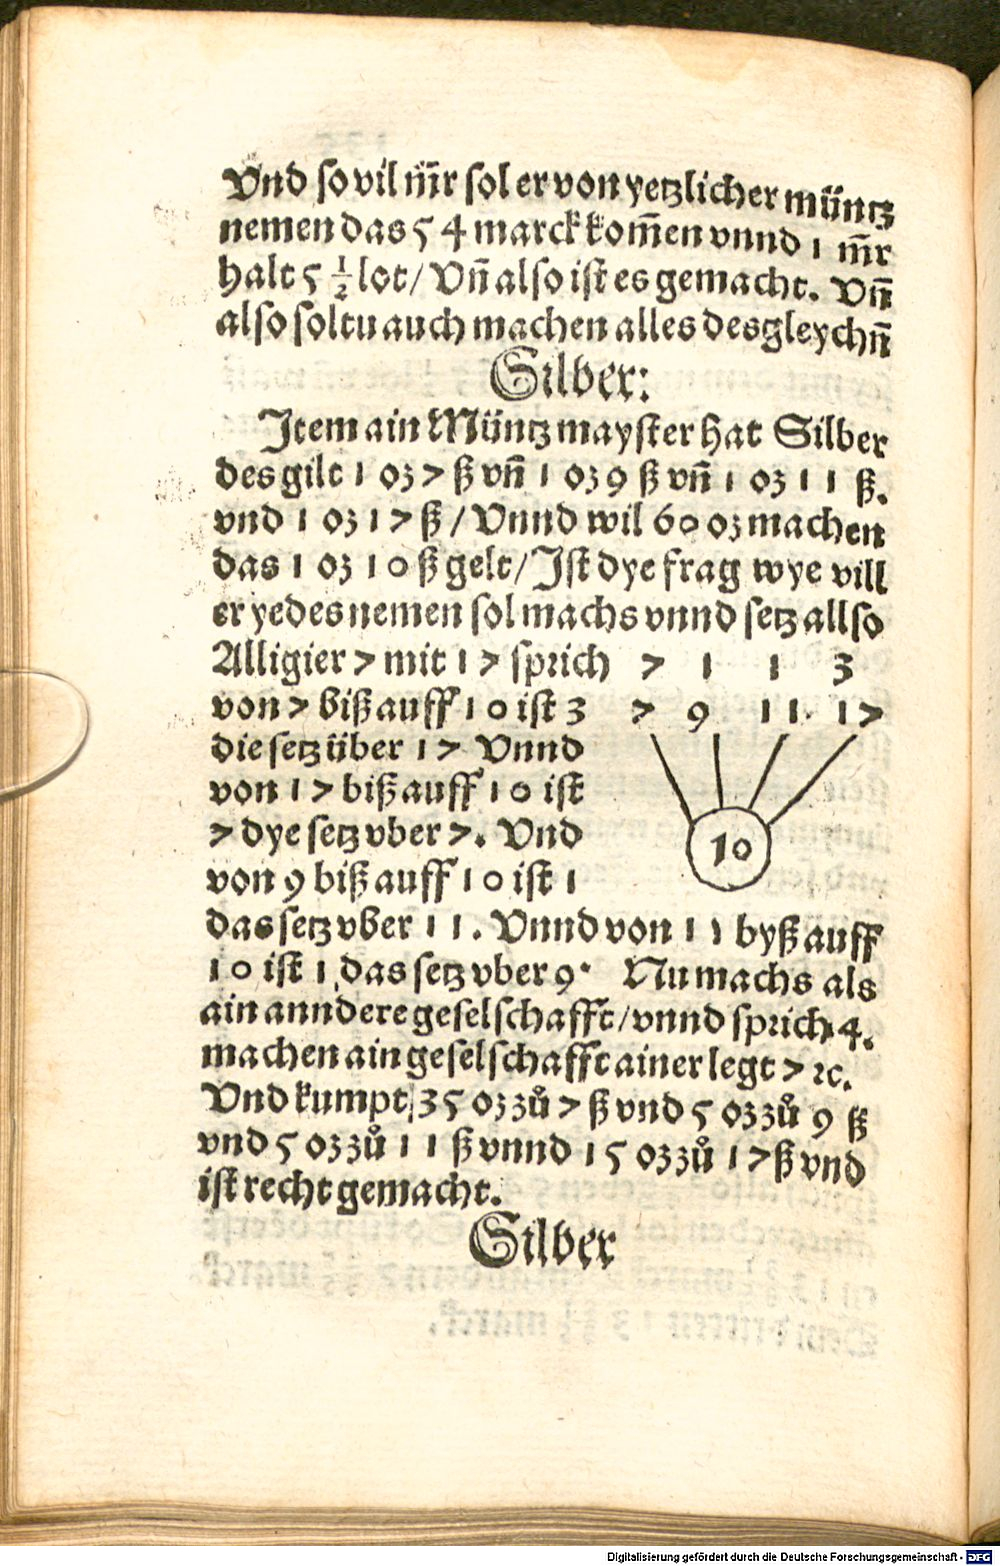 Vnd so vil m̄r sol er von yetzlicher müntz
nemen das 5 4 marck kom̄en vnnd 1 m̄r
halt 5 ½ lot / Vn̄ also ist es gemacht. Vn̄
also soltu auch machen alles desgleychn̄
Silber:
Item ain Müntz mayster hat Silber
des gilt 1 oʒ 7 ß vn̄ 1 oʒ 9 ß vn̄ 1 oʒ 1 1 ß.
vnd 1 oʒ 1 7 ß / Vnnd wil 60 oʒ machen
das 1 oʒ 1 0 ß gelt / Ist dye frag wye vill
er yedes nemen sol machs vnnd setz allso
Alligier 7 mit 1 7 sprich 7 1 1 3
von 7 biß auff 1 0 ist 3 7 9 1 1 1 7
die setz über 1 7 Vnnd
von 1 7 biß auff 1 0 ist
7 dye setz vber 7. Vnd
von 9 biß auff 1 0 ist 1
10
das setz vber 1 1. Vnnd von 1 1 byß auff
1 0 ist 1 das setz vber 9. Nu machs als
ain anndere geselschafft / vnnd sprich 4.
machen ain geselschafft ainer legt 7 ꝛc.
Vnd kumpt 35 oʒ zů 7 ß vnd 5 oʒ zů 9 ß
vnd 5 oʒ zů 1 1 ß vnnd 1 5 oʒ zů 1 7 ß vnd
ist recht gemacht.
Silber
Digitalisierung gefördert durch die Deutsche Forschungsgemeinschaft - DFG